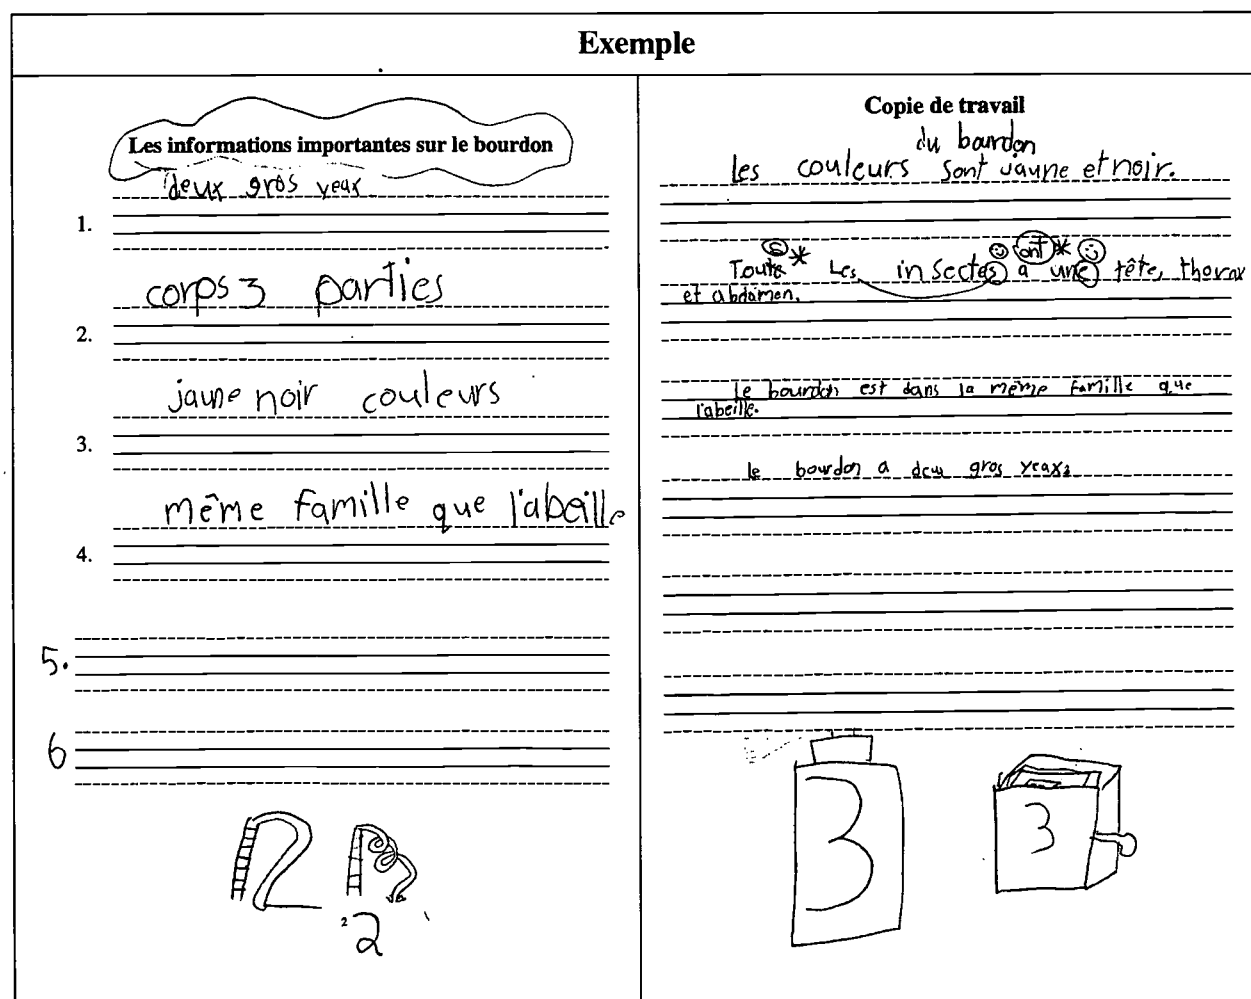 Exemple
Les informations importantes sur le bourdon
deux gros yeux
1.
corps 3 parties
2.
jaune noir couleurs
3.
même famille que l'abeille
4.
5.
6
2
2
Copie de travail
du bourdon
Les couleurs sont jaune et noir.
ont
Toute Les insectes a une tête, thorax
et abdomen.
le bourdon est dans la même famille que
l'abeille.
le bourdon a deux gros yeaxs
3
3